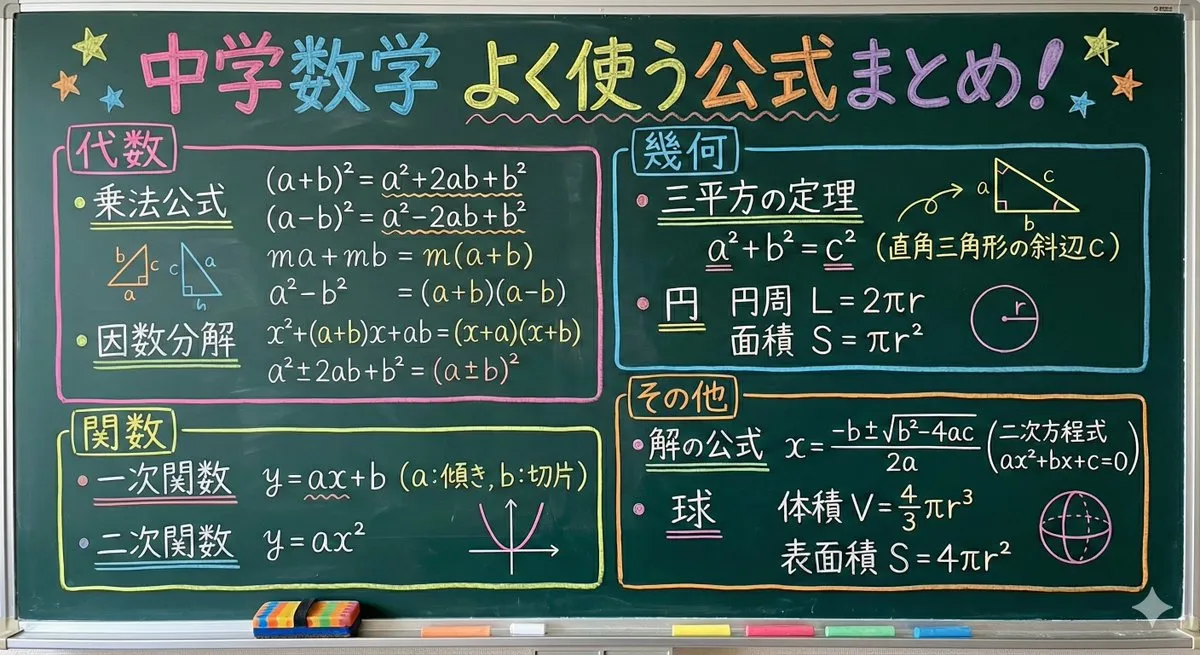 中学数学 よく使う公式まとめ!
代数
・乗法公式
(a+b)²=a²+2ab+b²
(a-b)²=a²-2ab+b²
ma+mb = m(a+b)
a²-b² =(a+b)(a-b)
b
c
a
c
a
・因数分解
x²+(a+b)x+ab=(x+a)(x+b)
a²±2ab+b²=(a±b)²
幾何
・三平方の定理
a
c
b
a²+b²=c² (直角三角形の斜辺c)
・円 円周 L=2πr
面積 S=πr²
r
関数
・一次関数 y=ax+b (a:傾き, b:切片)
・二次関数 y=ax²
その他
・解の公式 x=(-b±√(b²-4ac))/2a (二次方程式
ax²+bx+c=0)
・球 体積 V=4/3πr³
表面積 S=4πr²